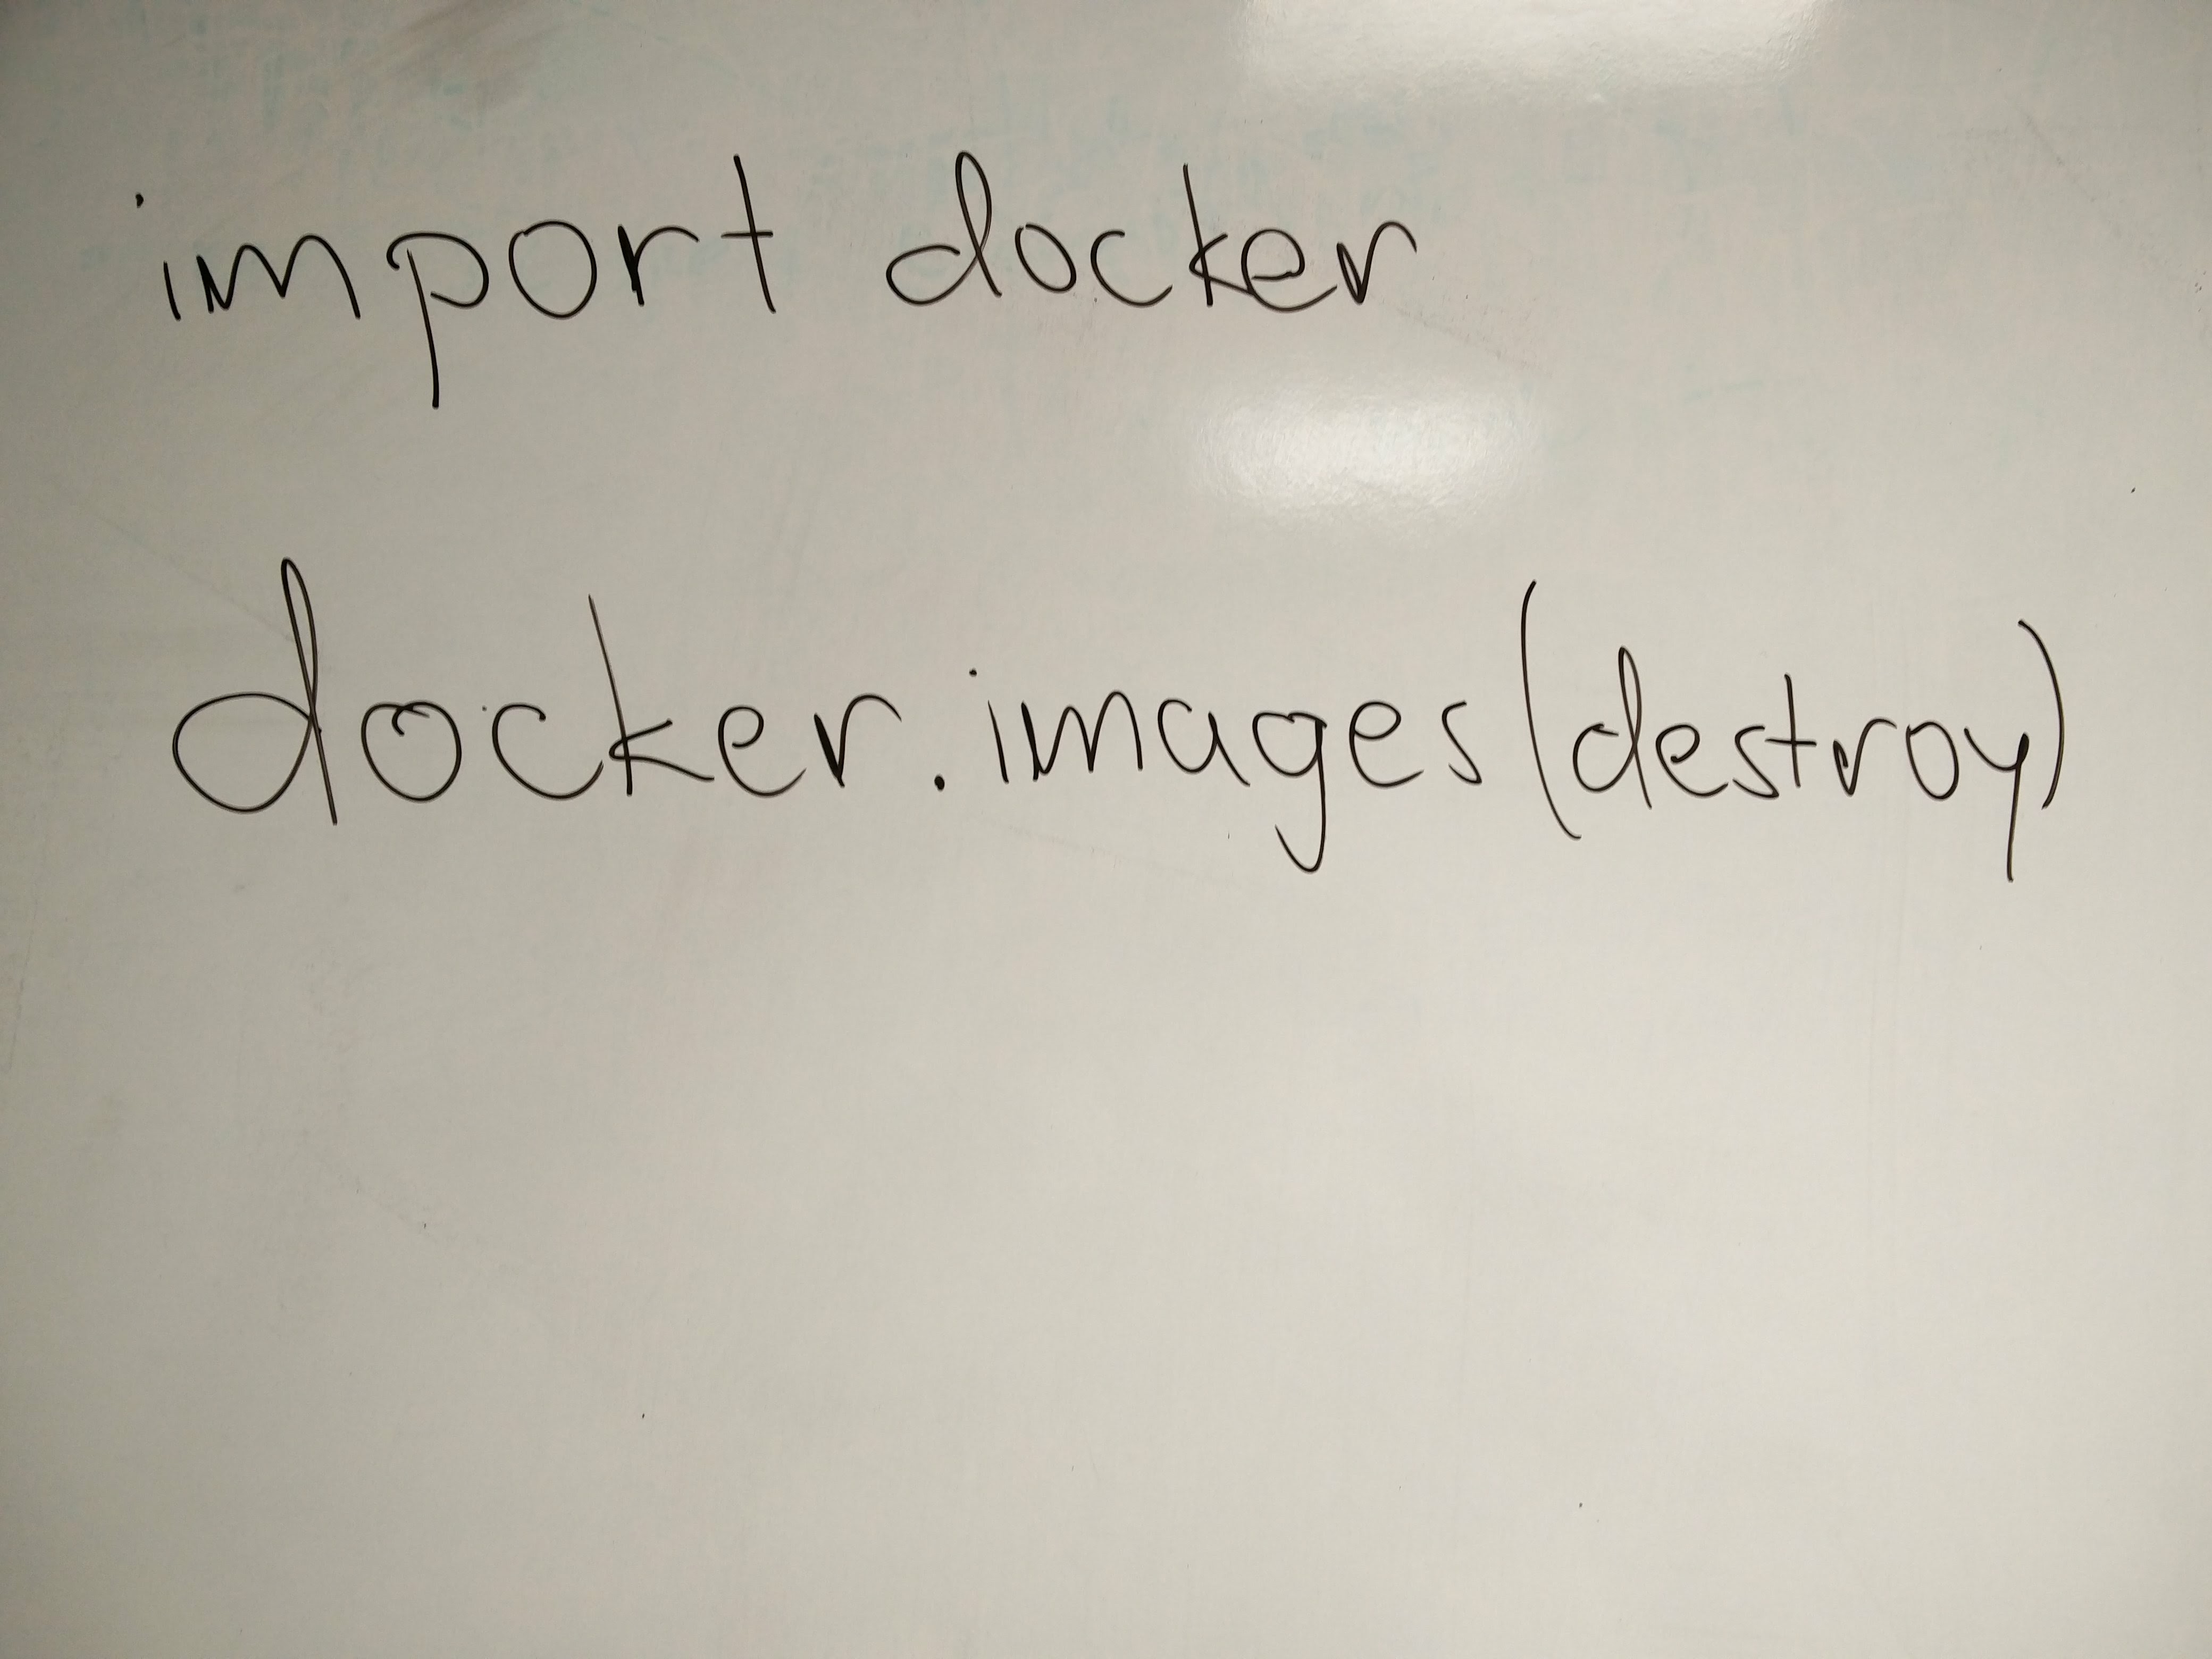 import docker
docker.images(destroy)